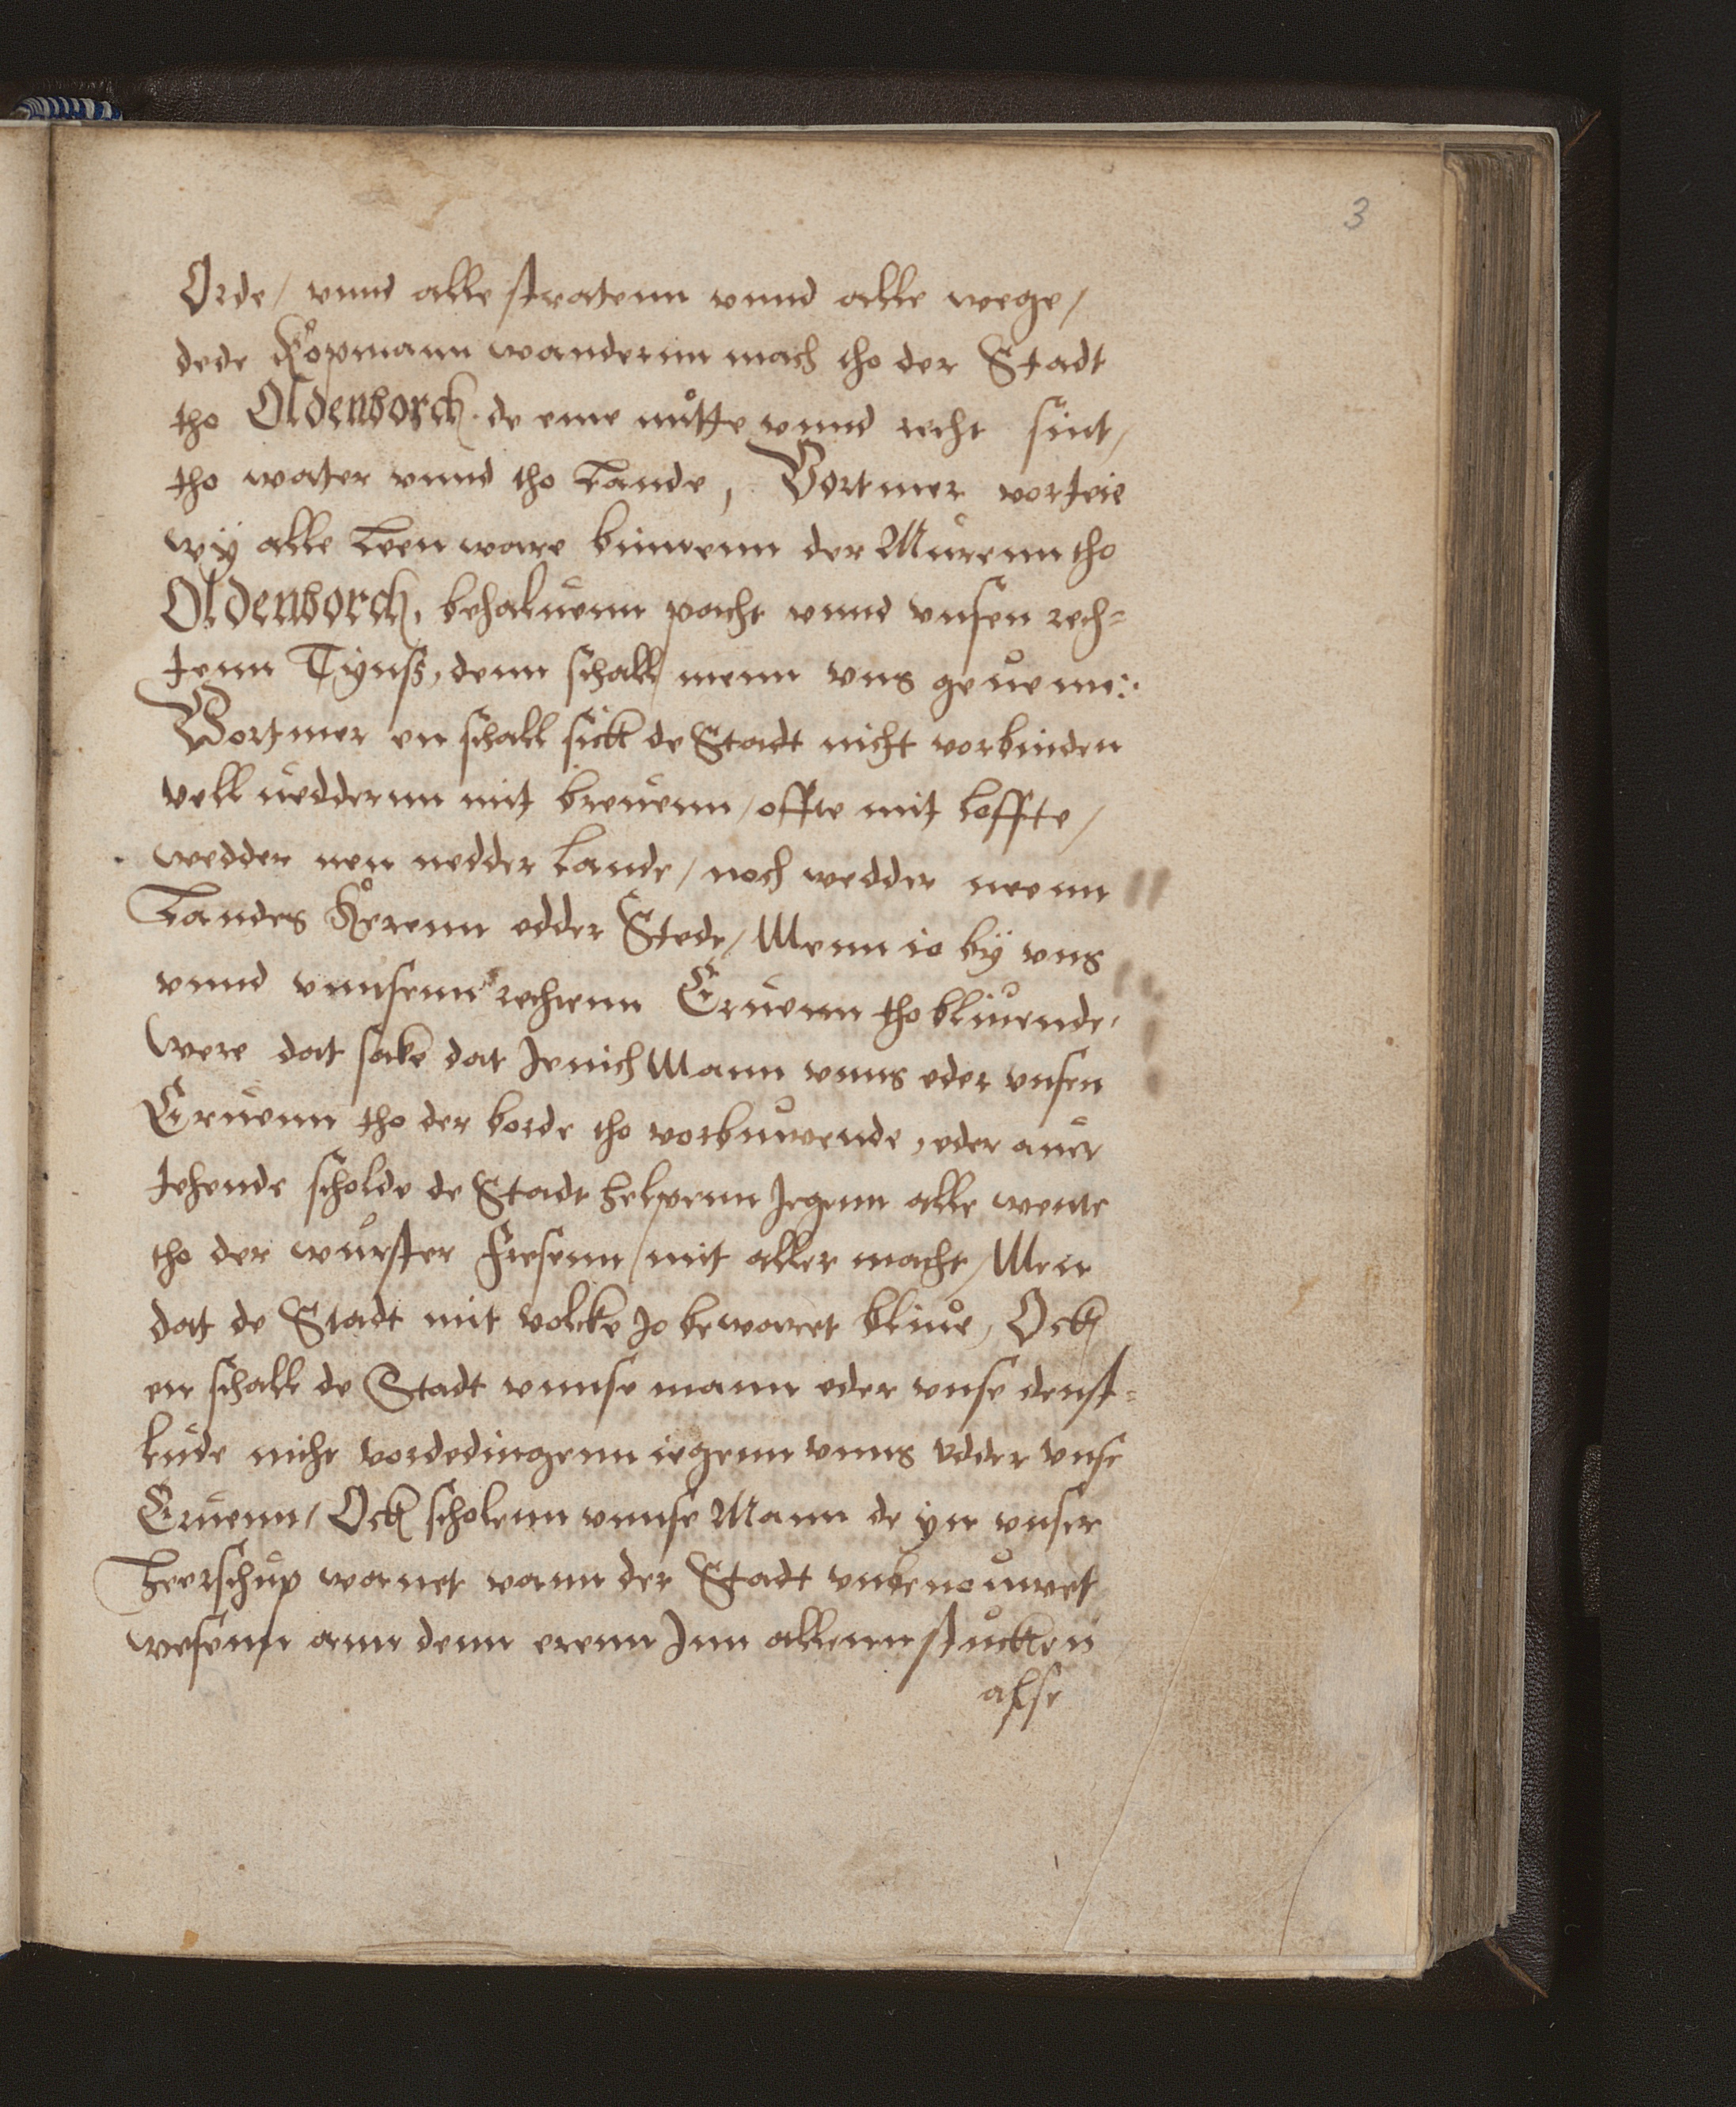 3
Orde / vnnd alle stratenn vnnd alle wege /
dede Kopmann wandernn mach tho der Stadt
tho Oldenborch. de eme nůtte vnnd recht sint /
tho water vnnd tho Lande, Vortmer vorteie
wÿ alle Leen ware binnenn der Mürenn tho
Oldenborch, behaluenn pacht vnnd vnsen rech=
tenn Tÿnß, denn schall menn vns geuenn:.
Vortmer en schall sick de Stadt nicht vorbinden
vell neddernn mit breuenn / offte mit Loffte /
wedder nen nedder Lande / noch wedder neenn
Landes Herenn edder Stede / Menn io bÿ vns
vnnd vnnsenn rechtenn Eruenn tho bliuende,
Were dat sake dat Jenich Mann vnns eder vnsen
Eruenn tho der borde tho vorbuwende, eder auer
tehende scholde de Stadt helpenn Jegenn alle wente
tho der wůrster Fresenn / mit aller macht / Men
dat de Stadt mit volcke Jo bewaret bliue, Ock
en schall de Stadt vnnse mann eder vnse denst=
lude nicht vordedingenn iegenn vnns edder vnse
Eruenn / Ock scholenn vnnse Mann de ÿn vnser
Heerschup wonet vann der Stadt vnbenouwet
wesenn ann denn erenn Jnn allenn stucken
alse